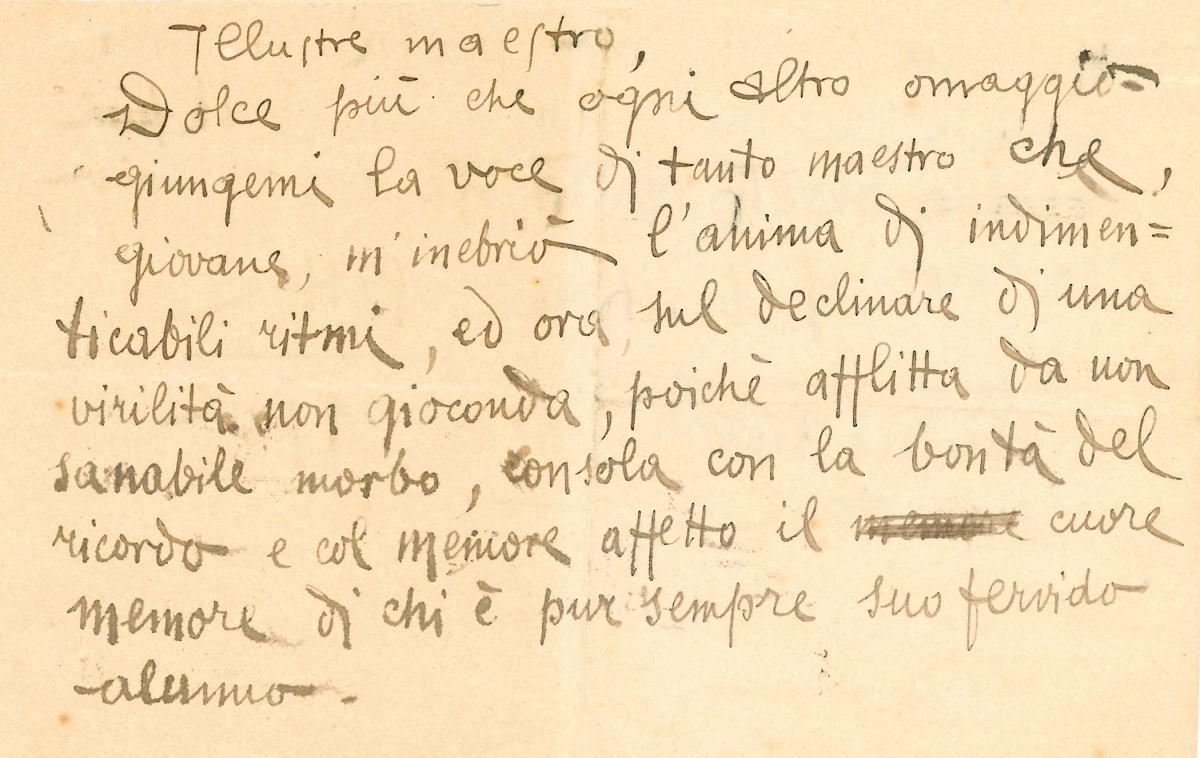 Illustre maestro,
Dolce più che ogni altro omaggio
giungemi la voce di tanto maestro che,
giovane, m'inebriò l'anima di indimen=
ticabili ritmi, ed ora, sul declinare di una
virilità non gioconda, poichè afflitta da non
sanabile morbo, consola con la bontà del
ricordo e col memore affetto il cuore
memore di chi è pur sempre suo fervido
alunno.